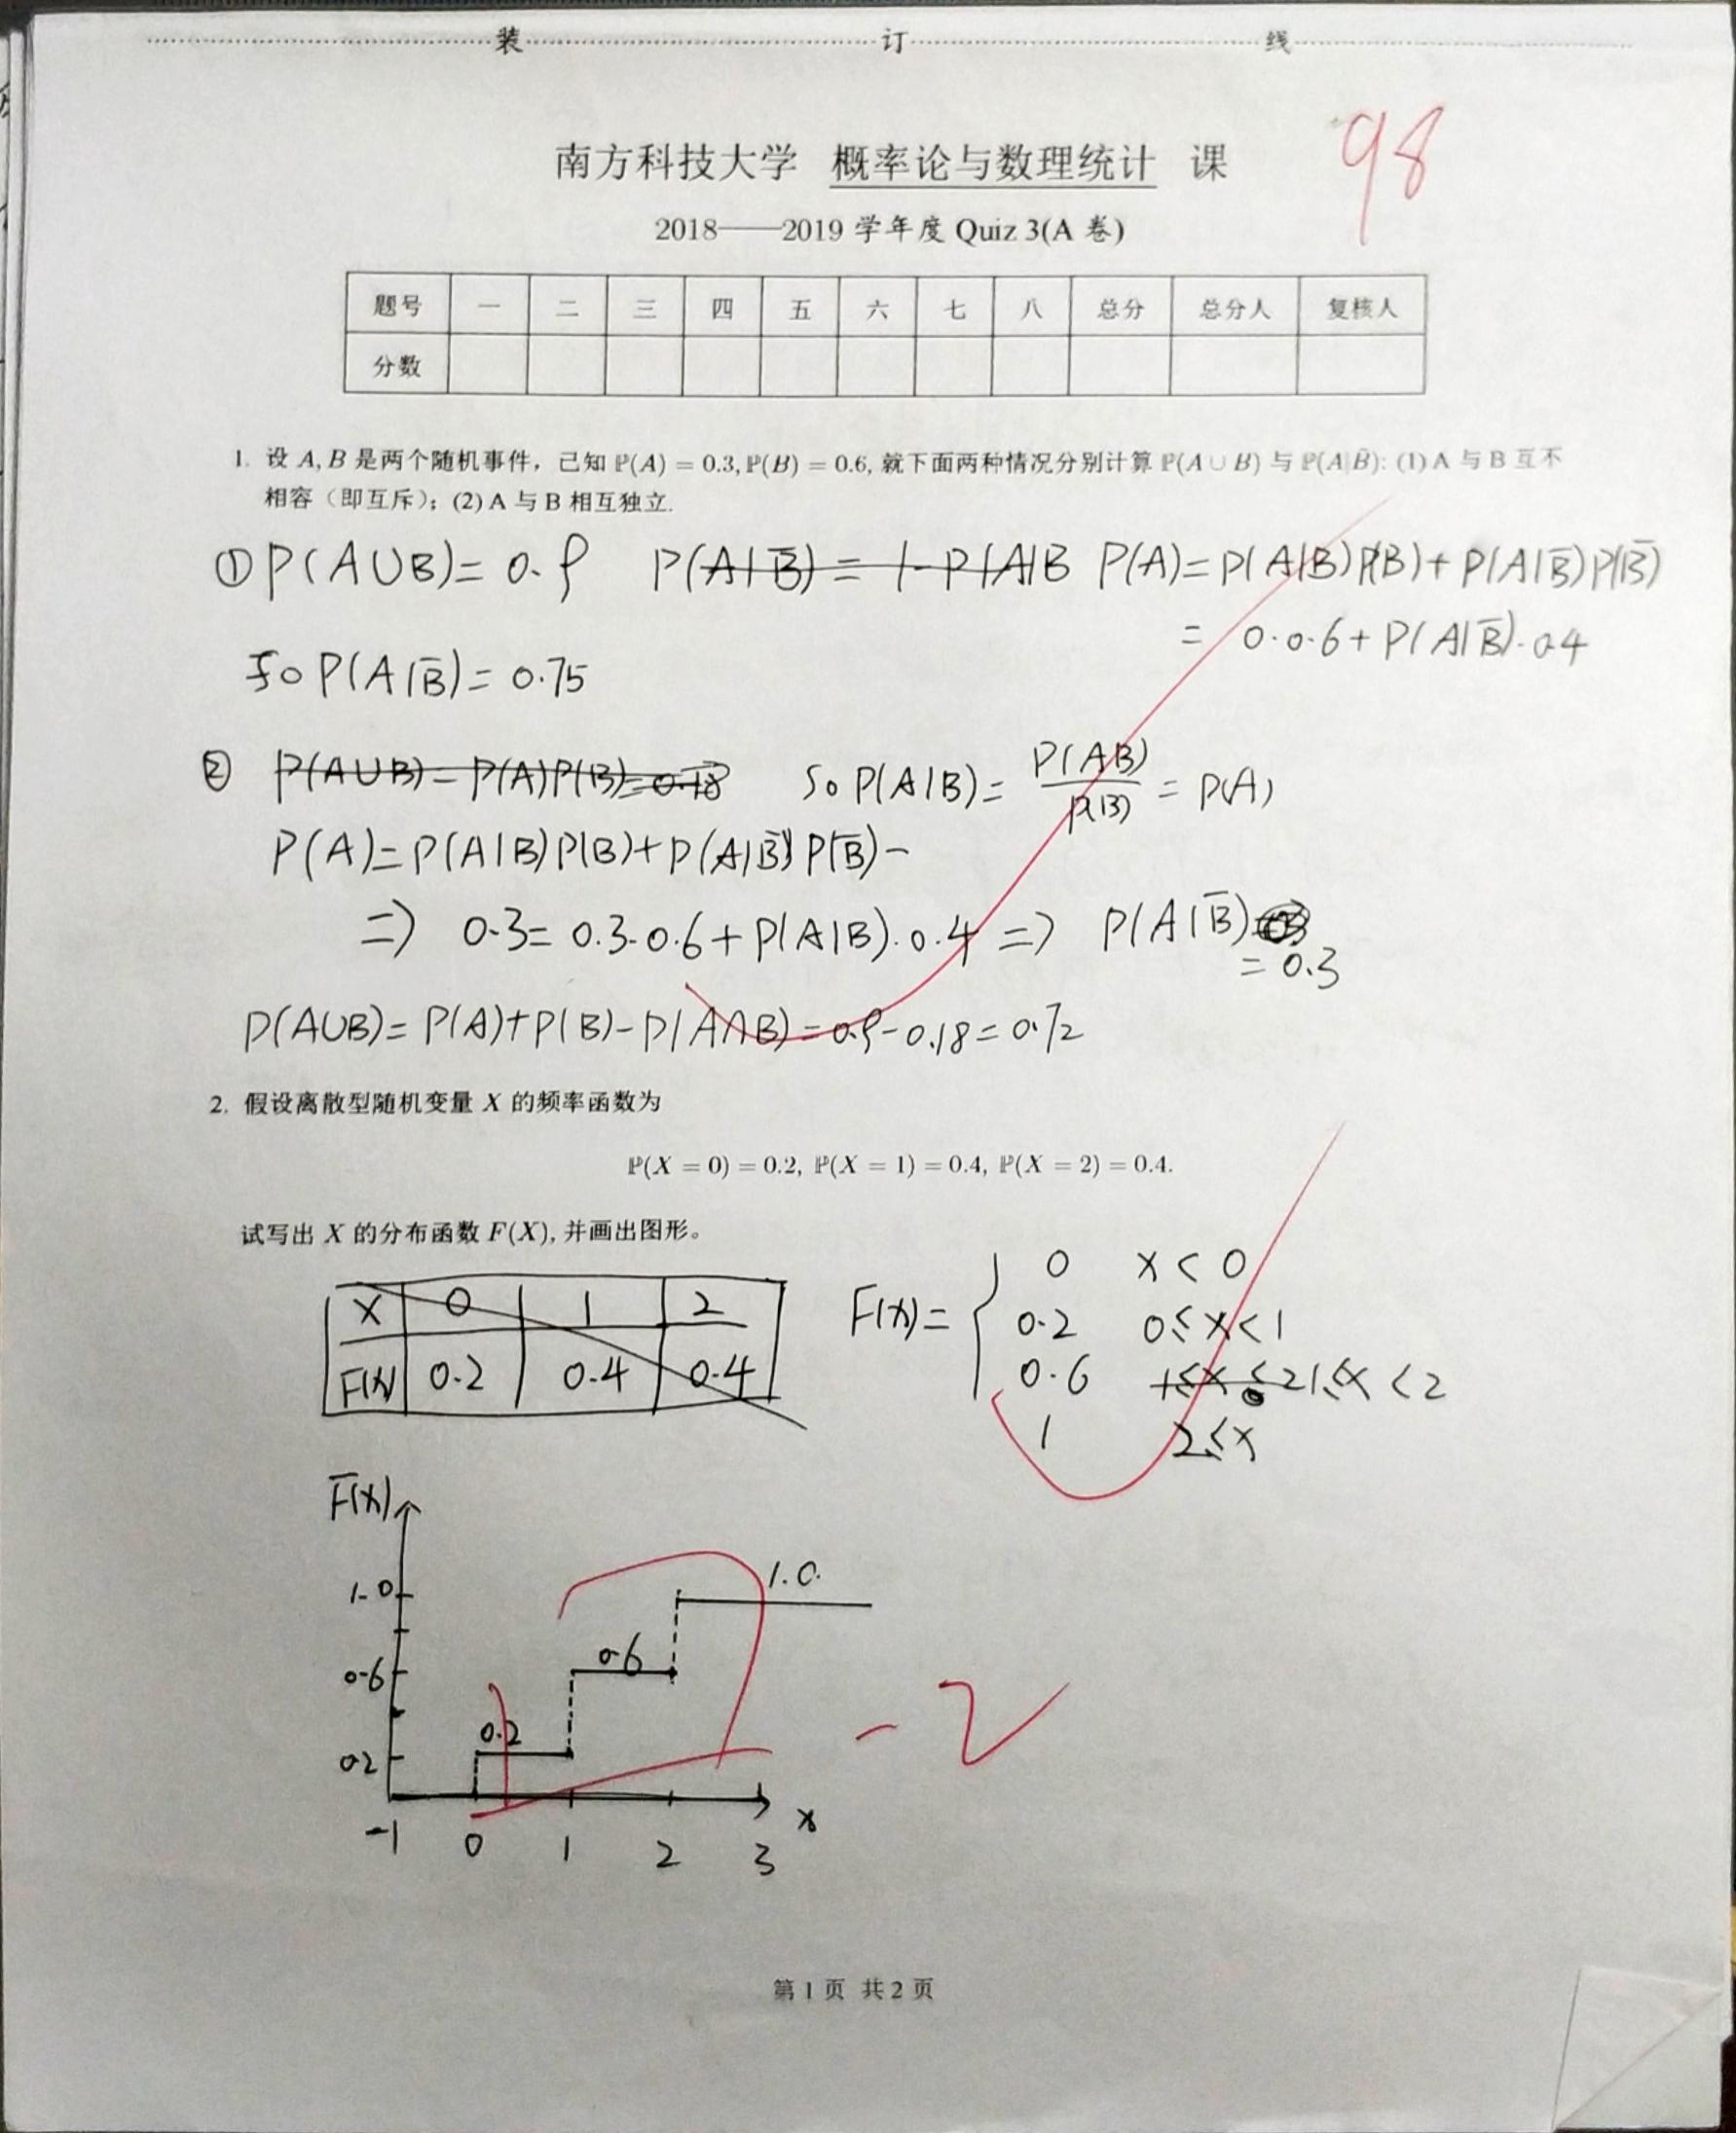 装 订 线
南方科技大学 概率论与数理统计 课
98
2018——2019 学年度 Quiz 3(A 卷)
题号 一 二 三 四 五 六 七 八 总分 总分人 复核人
分数
1. 设 A, B 是两个随机事件，已知 ℙ(A) = 0.3, ℙ(B) = 0.6, 就下面两种情况分别计算 ℙ(A ∪ B) 与 ℙ(A|B̄): (1) A 与 B 互不
相容（即互斥）; (2) A 与 B 相互独立.
① P(A∪B)= 0.9 P(A|B̄) = 1-P(A|B P(A)= P(A|B)P(B)+P(A|B̄)P(B̄)
= 0·0.6+P(A|B̄)·0.4
So P(A|B̄)= 0.75
② P(A∪B)=P(A)P(B)=0.18 So P(A|B)= P(AB)/P(B) = P(A)
P(A)=P(A|B)P(B)+P(A|B̄)P(B̄)-
=> 0.3= 0.3·0.6+P(A|B)·0.4 => P(A|B̄)
= 0.3
P(A∪B)= P(A)+P(B)-P(A∩B)=0.9-0.18=0.72
2. 假设离散型随机变量 X 的频率函数为
ℙ(X = 0) = 0.2, ℙ(X = 1) = 0.4, ℙ(X = 2) = 0.4.
试写出 X 的分布函数 F(X), 并画出图形。
X 0 1 2
F(x) 0.2 0.4 0.4
F(x)= { 0 x < 0
0.2 0≤x<1
0.6 1≤x≤2 1≤x<2
1 2≤x
F(x)
1.0 1.0
0.6 0.6
0.2 0.2
-2
-1 0 1 2 3 x
第 1 页 共 2 页